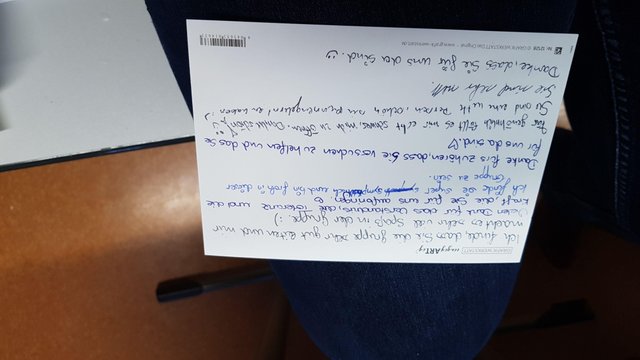 GRAFIK WERKSTATT
Ich finde, dass Sie die Gruppe sehr gut leiten und mir
macht es sehr viel Spaß in der Gruppe. :)
Vielen Dank für das Verständnis, die Toleranz und die
Kraft, die Sie für uns aufbringen.
Ich finde sie super sympatisch und bin froh in dieser
Gruppe zu sein.
Danke fürs zuhören, dass Sie versuchen zu helfen und das Sie
für uns da sind.
Für gewöhnlich fällt es mir echt schwer, mich zu öffnen.
Sie sind eine Person,
Sie sind sehr nett.
Danke, dass Sie für uns da sind. :)
Nr. © GRAFIK WERKSTATT Das Original · www.grafik-werkstatt.de